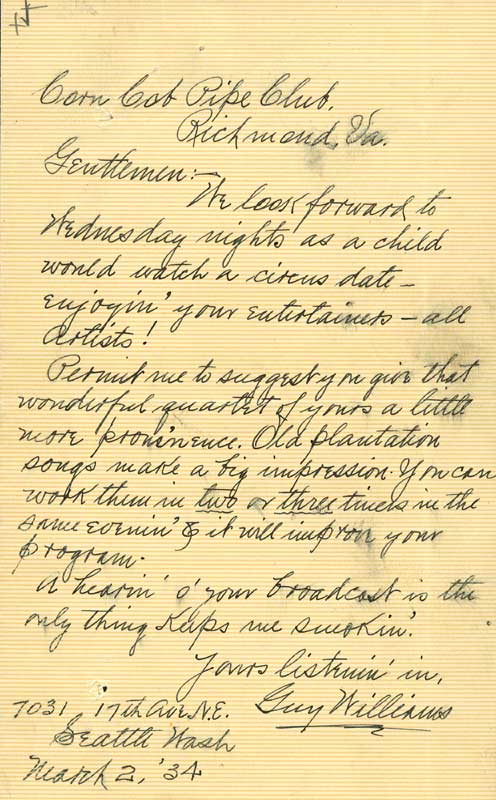 Corn Cob Pipe Club,
Richmond, Va.
Gentlemen:—
We look forward to
Wednesday nights as a child
would watch a circus date —
enjoyin' your entertainers — all
artists!
Permit me to suggest you give that
wonderful quartet of yours a little
more prominence. Old plantation
songs make a big impression. You can
work them in two or three times in the
same evenin' & it will improv your
program.
A hearin' o' your broadcast is the
only thing keeps me smokin'.
Yours listenin' in,
Guy Williams
7031 17th Ave. N.E.
Seattle Wash
March 2, '34